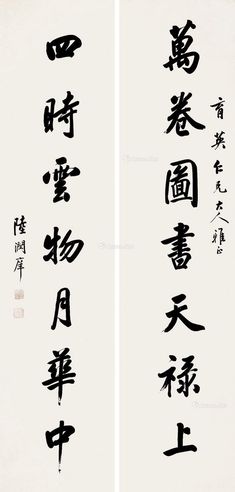 育英仁兄大人雅正
萬卷圖書天祿上
四時雲物月華中
陸潤庠